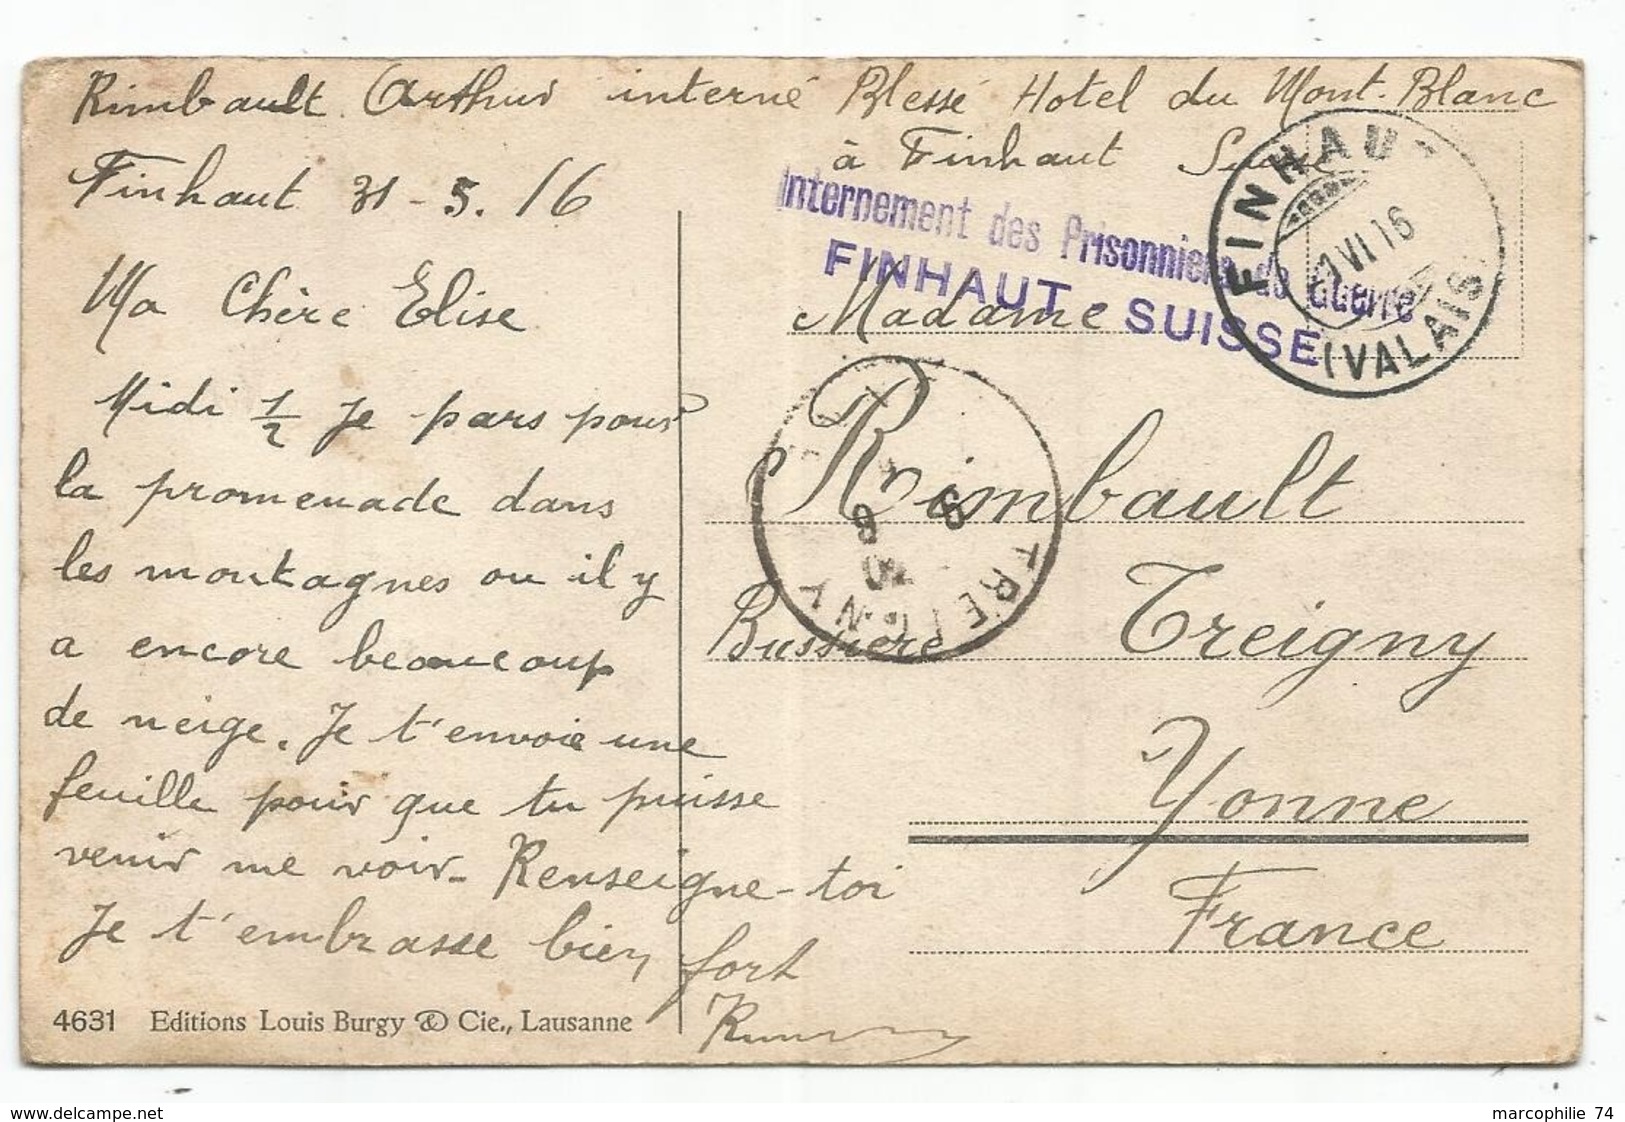 Rimbault Arthur interné Blessé Hotel du Mont-Blanc
à Finhaut Suisse
Finhaut 31-5.16
Internement des Prisonniers de Guerre
FINHAUT - SUISSE
FINHAUT
1 VI 16
(VALAIS)
Ma Chère Elise
Midi 1/2 Je pars pour
la promenade dans
les montagnes ou il y
a encore beaucoup
de neige. Je t'envoie une
feuille pour que tu puisse
venir me voir - Renseigne-toi
Je t'embrasse bien fort
Madame
Rimbault
Bussiere Treigny
Yonne
France
TREIGNY
9 6
4631 Editions Louis Burgy & Cie., Lausanne
www.delcampe.net
marcophilie 74